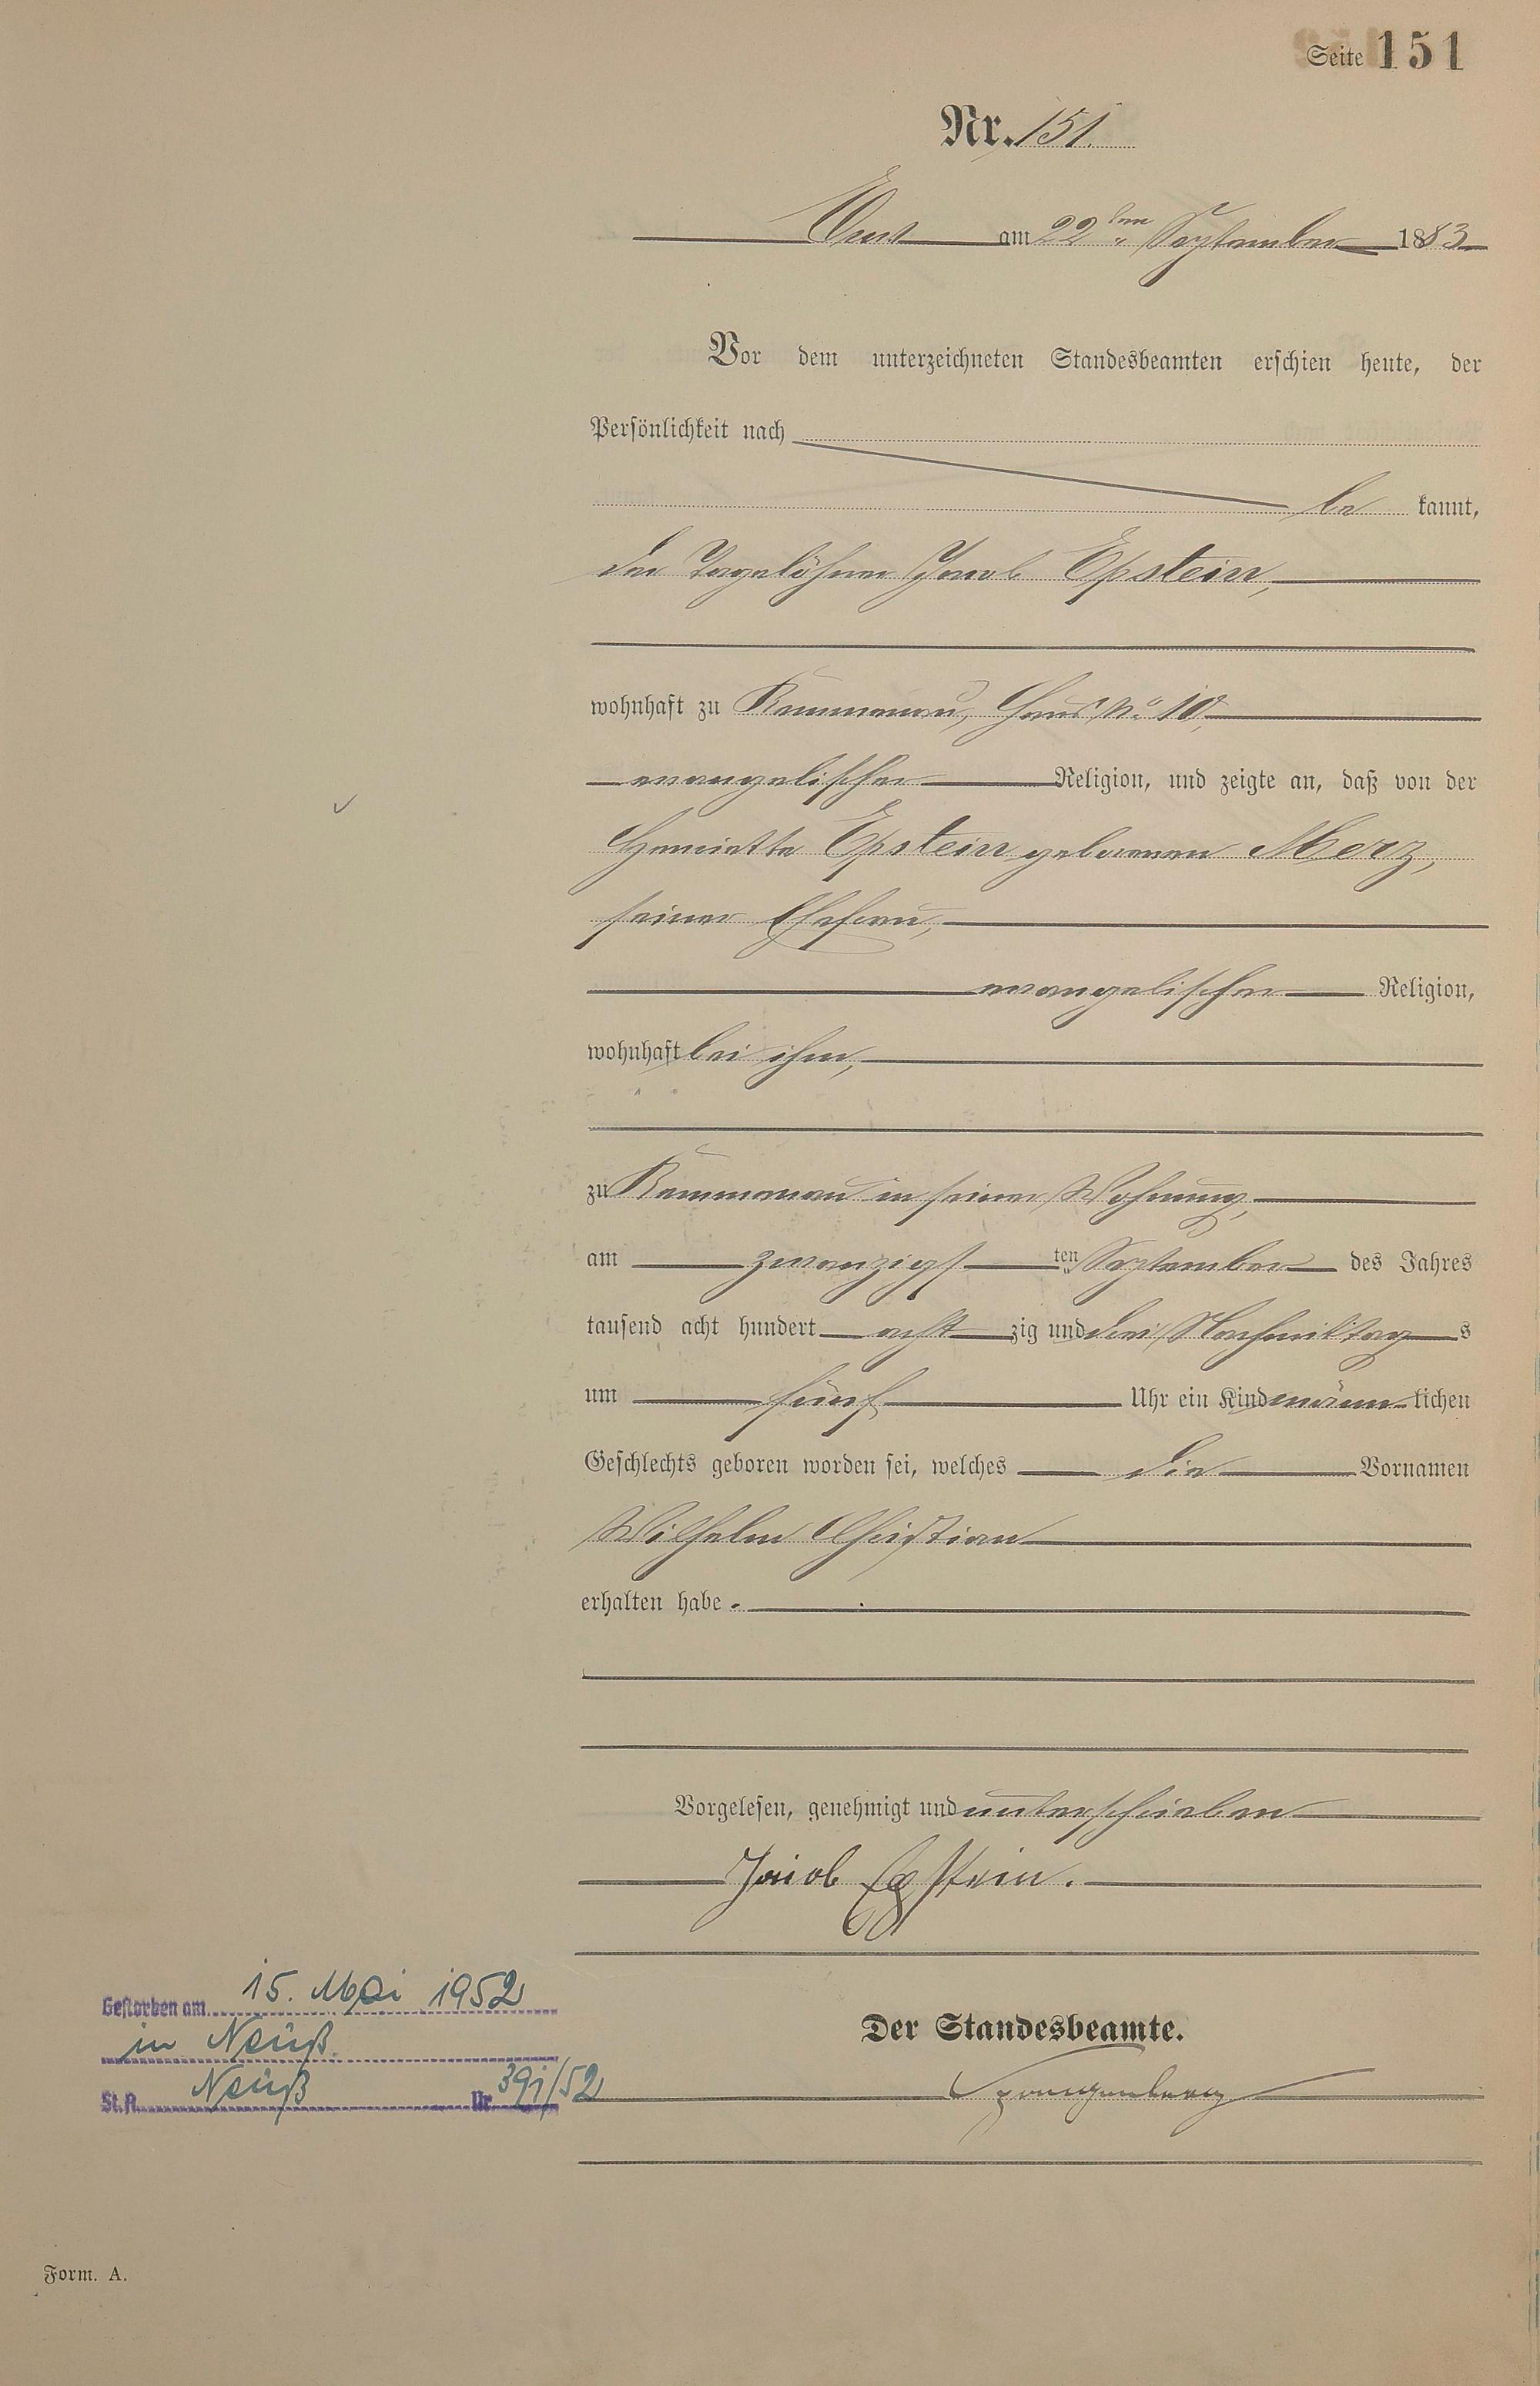 Seite 151
Nr. 151.
Ems am 22ten September 1883
Vor dem unterzeichneten Standesbeamten erschien heute, der
Persönlichkeit nach
be kannt,
der Tagelöhner Jacob Epstein,
wohnhaft zu Kemmenau, Haus No 10,
evangelischer Religion, und zeigte an, daß von der
Henriette Epstein geborenen Merz,
seiner Ehefrau,
evangelischer Religion,
wohnhaft bei ihm,
zu Kemmenau in seiner Wohnung,
am zwanzigst ten September des Jahres
tausend acht hundert acht zig und drei Nachmittag s
um fünf Uhr ein Kind männ lichen
Geschlechts geboren worden sei, welches die Vornamen
Wilhelm Christian
erhalten habe.
Vorgelesen, genehmigt und unterschrieben
Jacob Epstein.
Gestorben am 15. Mai 1952
in Neuß.
St.A. Neuß Nr. 391/52
Der Standesbeamte.
Spangenberg
Form. A.